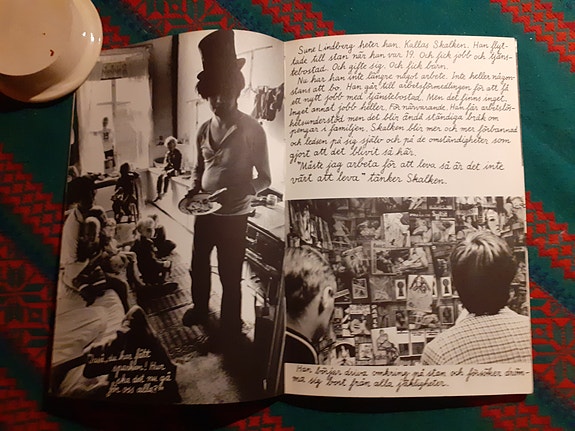 "Jaså, du har fått
sparken! Hur
ska det nu gå
för oss alla?"
Sune Lindberg heter han. Kallas Skalken. Han flyt-
tade till stan när han var 19. Och fick jobb och tjäns-
tebostad. Och gifte sig. Och fick barn.
Nu har han inte längre något arbete. Inte heller någon-
stans att bo. Han går till arbetsförmedlingen för att få
ett nytt jobb med tjänstebostad. Men det finns inget.
Inget annat jobb heller, för närvarande. Han får arbetslös-
hetsunderstöd men det blir ändå ständiga bråk om
pengar i familjen. Skalken blir mer och mer förbannad
och ledsen på sig själv och på de omständigheter som
gjort att det blivit så här.
"Måste jag arbeta för att leva så är det inte
värt att leva" tänker Skalken.
Han börjar driva omkring på stan och försöker dröm-
ma sig bort från alla jäkligheter.